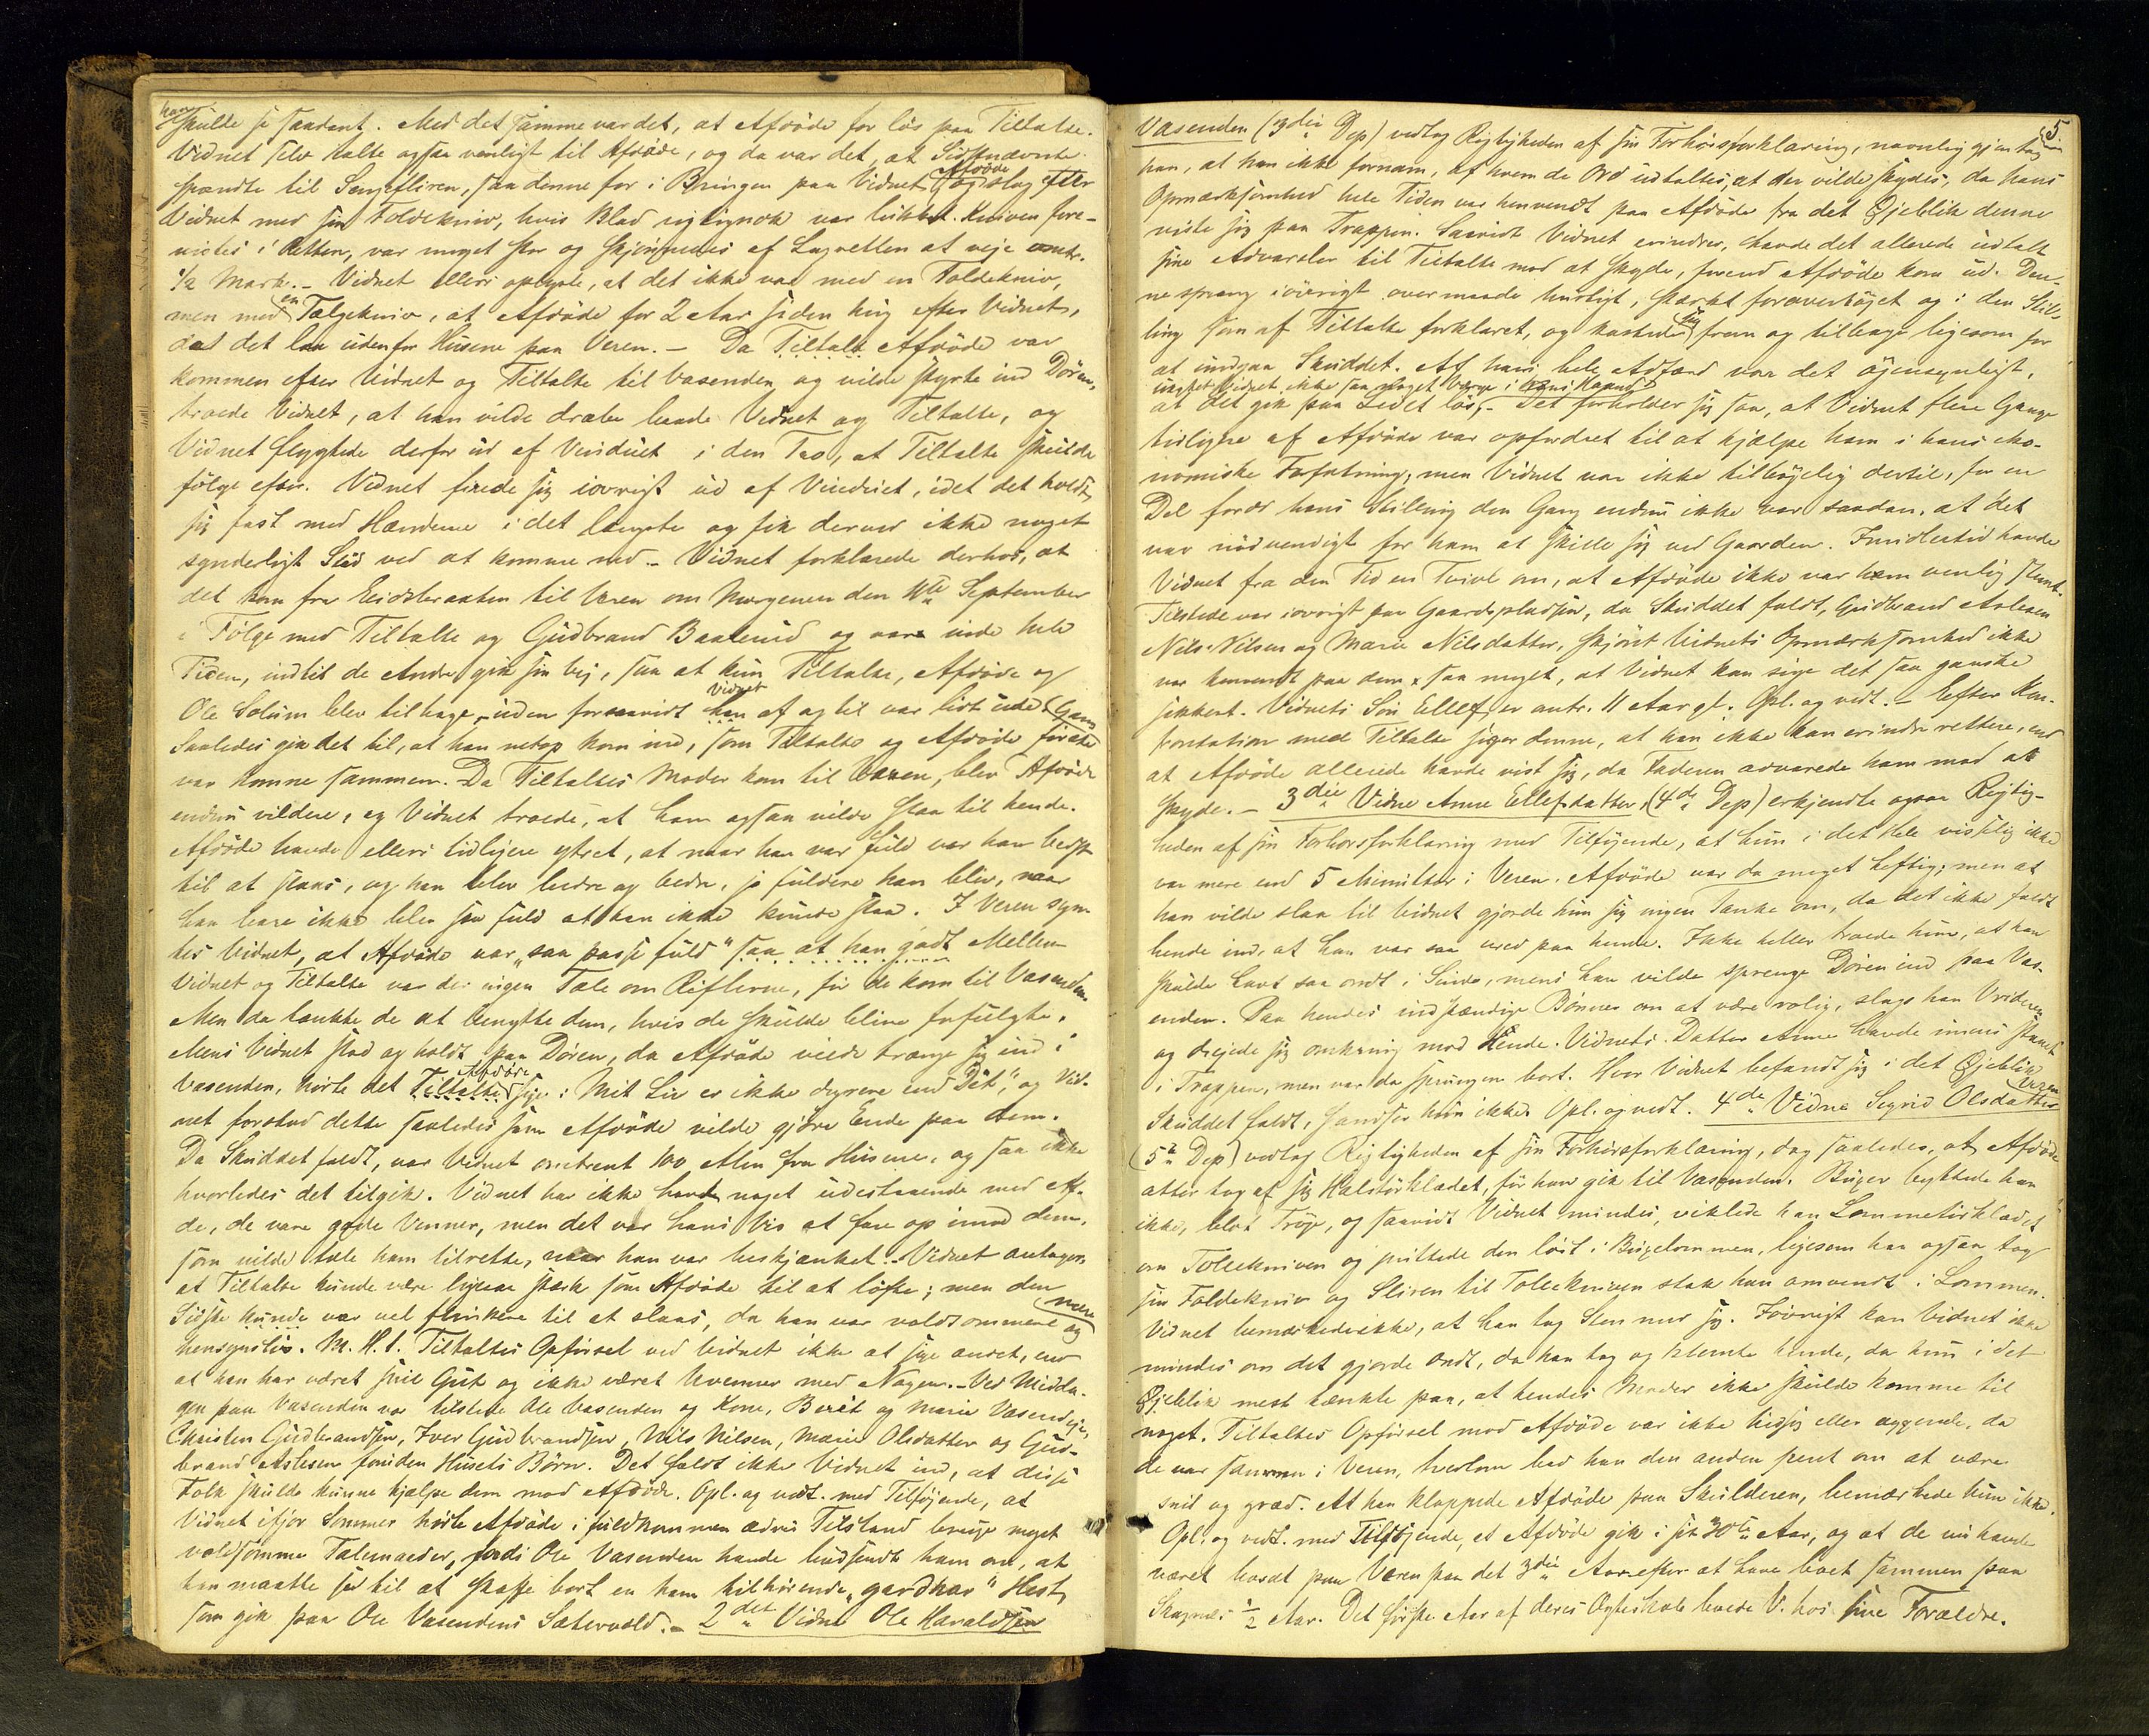 han
skulde se saadant. Med det samme var det, at Afdöde for lös paa Tiltalte.
Vidnet selv talte ogsaa venligt til Afdöde, og da var det, at Sidstnævnte
spændte til Sengefliren, saa denne for i Bringen paa Vidnet. Afdöde og slog efter
Vidnet med sin Foldekniv, hvis Blad rigtignok var lukket. Kniven fore-
vistes i Retten, var meget stor og skjønnedes af Lagretten at veje omtr.
1/2 Mark. – Vidnet ellers oplyste, at det ikke var med en Foldekniv,
men med en Tælgekniv, at Afdöde for 2 Aar siden hug efter Vidnet,
dat det laa udenfor Husene paa Veren. – Da Tiltalt Afdöde var
kommen efter Vidnet og Tiltalte til Vasenden og vilde styrte ind Dören,
troede Vidnet, at han vilde dræbe baade Vidnet og Tiltalte, og
Vidnet flygtede derfor ud af Vinduet i den Tro, at Tiltalte skulde
fölge efter. Vidnet firede sig iövrigt ud af Vinduet, idet det holdt
sig fast med Hænderne i det længste og fik derved ikke noget
synderligt Stød ved at komme ned. – Vidnet forklarede derhos, at
det kom fra Eidsbraaten til Veren om Morgenen den 11te September
i Fölge med Tiltalte og Gudbrand Baalerud og vare inde hele
Tiden, indtil de Andre gik sin Vej, saa at kun Tiltalte, Afdöde og
Ole Solum blev tilbage, uden forsaavidt han Vidnet af og til var lidt ude. Gang
Saaledes gik det til, at han netop kom ind, som Tiltalte og Afdöde förste
var komne sammen. Da Tiltaltes Moder kom til Veren, blev Afdöde
endnu vildere, og Vidnet troede, at han ogsaa vilde slaa til hende.
Afdöde havde ellers tidligere ytret, at naar han var fuld var han bedst
til at slaas, og han blev bedre og bedre, jo fuldere han blev, naar
han bare ikke blev saa fuld at han ikke kunde staa. I Veren syn-
tes Vidnet, at Afdöde var „saa passe fuld“ saa at han godt Mellem
Vidnet og Tiltalte var der ingen Tale om Riflerne, för de kom til Vasenden.
Men da tænkte de at benytte dem, hvis de skulde blive forfulgte.
Mens Vidnet stod og holdt paa Dören, da Afdöde vilde trænge sig ind i
Vasenden, hörte det Tiltalte Afdöde sige: „Mit Liv er ikke dyrere end Dit“, og Vid-
net forstod dette saaledes som Afdöde vilde gjöre Ende paa dem.
Da Skuddet faldt, var Vidnet omtrent 100 Alen fra Husene, og saa ikke
hvorledes det tilgik. Vidnet har ikke havt noget udestaaende med Af-
de, de vare gode Venner, men det var hans Vis at fare op imod dem,
som vilde tale ham tilrette, naar han var beskjænket. – Vidnet antager,
at Tiltalte kunde være ligesaa stærk som Afdöde til at löfte; men den
Sidste kunde var vel flinkere til at slaas, da han var voldsommere og mere
hensynslös. M. H. t. Tiltaltes Opførsel ved Vidnet ikke at sige andet, end
at han har været snil Gut og ikke været Uvenner med Nogen. – Ved Midda-
gen paa Vasenden var tilstede Ole Vasenden og Kone, Berit og Marie Vasendeje,
Christen Gudbrandsen, Iver Gudbrandsen, Nils Nilsen, Marie Olsdatter og Gud-
brand Aslesen foruden Husets Börn. Det faldt ikke Vidnet ind, at disse
Folk skulde kunne hjælpe dem mod Afdöde. Opl. og vedt. med Tilföjende, at
Vidnet ifjor Sommer hörte Afdöde i fuldkommen ædru Tilstand bruge meget
voldsomme Talemaader, fordi Ole Vasenden havde budsendt ham om, at
han maatte se til at skaffe bort en ham tilhörende „gardkar“ Hest,
som gik paa Ole Vasendens Sætervold. – 2det Vidne Ole Haraldsen
5.
Vasenden (3die Dep) vedtog Rigtigheden af sin Forhørsforklaring, navnlig gjentog
han, at han ikke fornam, af hvem de Ord udtaltes, at der vilde skydes, da hans
Opmærksomhed hele Tiden var henvendt paa Afdöde fra det Öjeblik denne
viste sig paa Trappen. Saavidt Vidnet erindrer, havde det allerede udtalt
sine Advarsler til Tiltalte mod at skyde, förend Afdöde kom ud. Den-
ne sprang iövrigt overmaade hurtigt, stærkt foroverböjet og i den Stil-
ling som af Tiltalte forklaret, og kastede sig frem og tilbage ligesom for
at undgaa Skuddet. Af hans hele Adfærd var det öjensynligt,
uagtet Vidnet ikke saa noget Værge i hans Haand
at det gik paa Livet lös. – Det forholder sig saa, at Vidnet flere Gange
tidligere af Afdöde var opfordret til at hjælpe ham i hans öko-
nomiske Forfatning, men Vidnet var ikke tilböjelig dertil, for en
Del fordi hans Stilling den Gang endnu ikke var saadan, at det
var nödvendigt for ham at skille sig ved Gaarden. Imidlertid havde
Vidnet fra den Tid en Tvivl om, at Afdöde ikke var ham venlig stemt.
Tilstede var iövrigt paa Gaardspladsen, da Skuddet faldt, Gudbrand Aslesen
Nils Nilsen og Marie Nilsdatter, skjönt Vidnets Opmærksomhed ikke
var henvendt paa dem saa meget, at Vidnet kan sige det saa ganske
sikkert. Vidnets Sön Ellef er omtr. 11 Aar gl. Opl. og vedt. – Efter Kon-
frontation med Tiltalte siger denne, at han ikke kan erindre rettere, end
at Afdöde allerede havde vist sig, da Faderen advarede ham mod at
skyde. – 3die Vidne Anne Ellefsdatter, (4de Dep) erkjendte ogsaa Rigtig-
heden af sin Forhørsforklaring med Tilföjende, at hun i det Hele visselig ikke
var mere end 5 Minutter i Veren. Afdöde var da meget heftig; men at
han vilde slaa til Vidnet gjorde hun sig ingen Tanke om, da det ikke faldt
hende ind, at han var saa vred paa hende. Ikke heller troede hun, at han
skulde havt saa ondt i Sinde, mens han vilde sprenge Dören ind paa Vas-
enden. Paa hendes indstændige Bönner om at være rolig, slap han Vrideren
og drejede sig omkring mod Hende. Vidnets Datter Anne havde imens staaet
i Trappen, men var da sprungen bort. Hvor Vidnet befandt sig i det Öjeblik
Skuddet faldt, sandser hun ikke. Opl. og vedt. 4de Vidne Sigrid Olsdatter Veren
(5te Dep) vedtog Rigtigheden af sin Forhörsforklaring, dog saaledes, at Afdöde
atter tog af sig Halstörklædet, för han gik til Vasenden. Buxer byttede han
ikke, blot Tröje, og saavidt Vidnet mindes, viklede han Lommetörklædet
om Tollekniven og puttede den löst i Buxelommen, ligesom han ogsaa tog
sin Foldekniv og Sliren til Tollekniven stak han omvendt i Lommen.
Vidnet bemærkede ikke, at han tog Sten med sig. Iövrigt kan Vidnet ikke
mindes om det gjorde ondt, da han tog og klemte hende, da hun i det
Öjeblik mest tænkte paa, at hendes Moder ikke skulde komme til
noget. Tiltaltes Opförsel mod Afdöde var ikke hidsig eller æggende, da
de var sammen i Veren, hvorom bad han den anden pent om at være
snil og græd. At han klappede Afdöde paa Skulderen, bemærkede hun ikke.
Opl. og vedt. med Tilföjende, at Afdöde gik i sit 30te Aar, og at de nu havde
været bosat paa Veren paa det 3die Aar efter at have boet sammen paa
Skagnæs 1/2 Aar. Det förste Aar af deres Ægteskab boede V. hos sine Forældre.